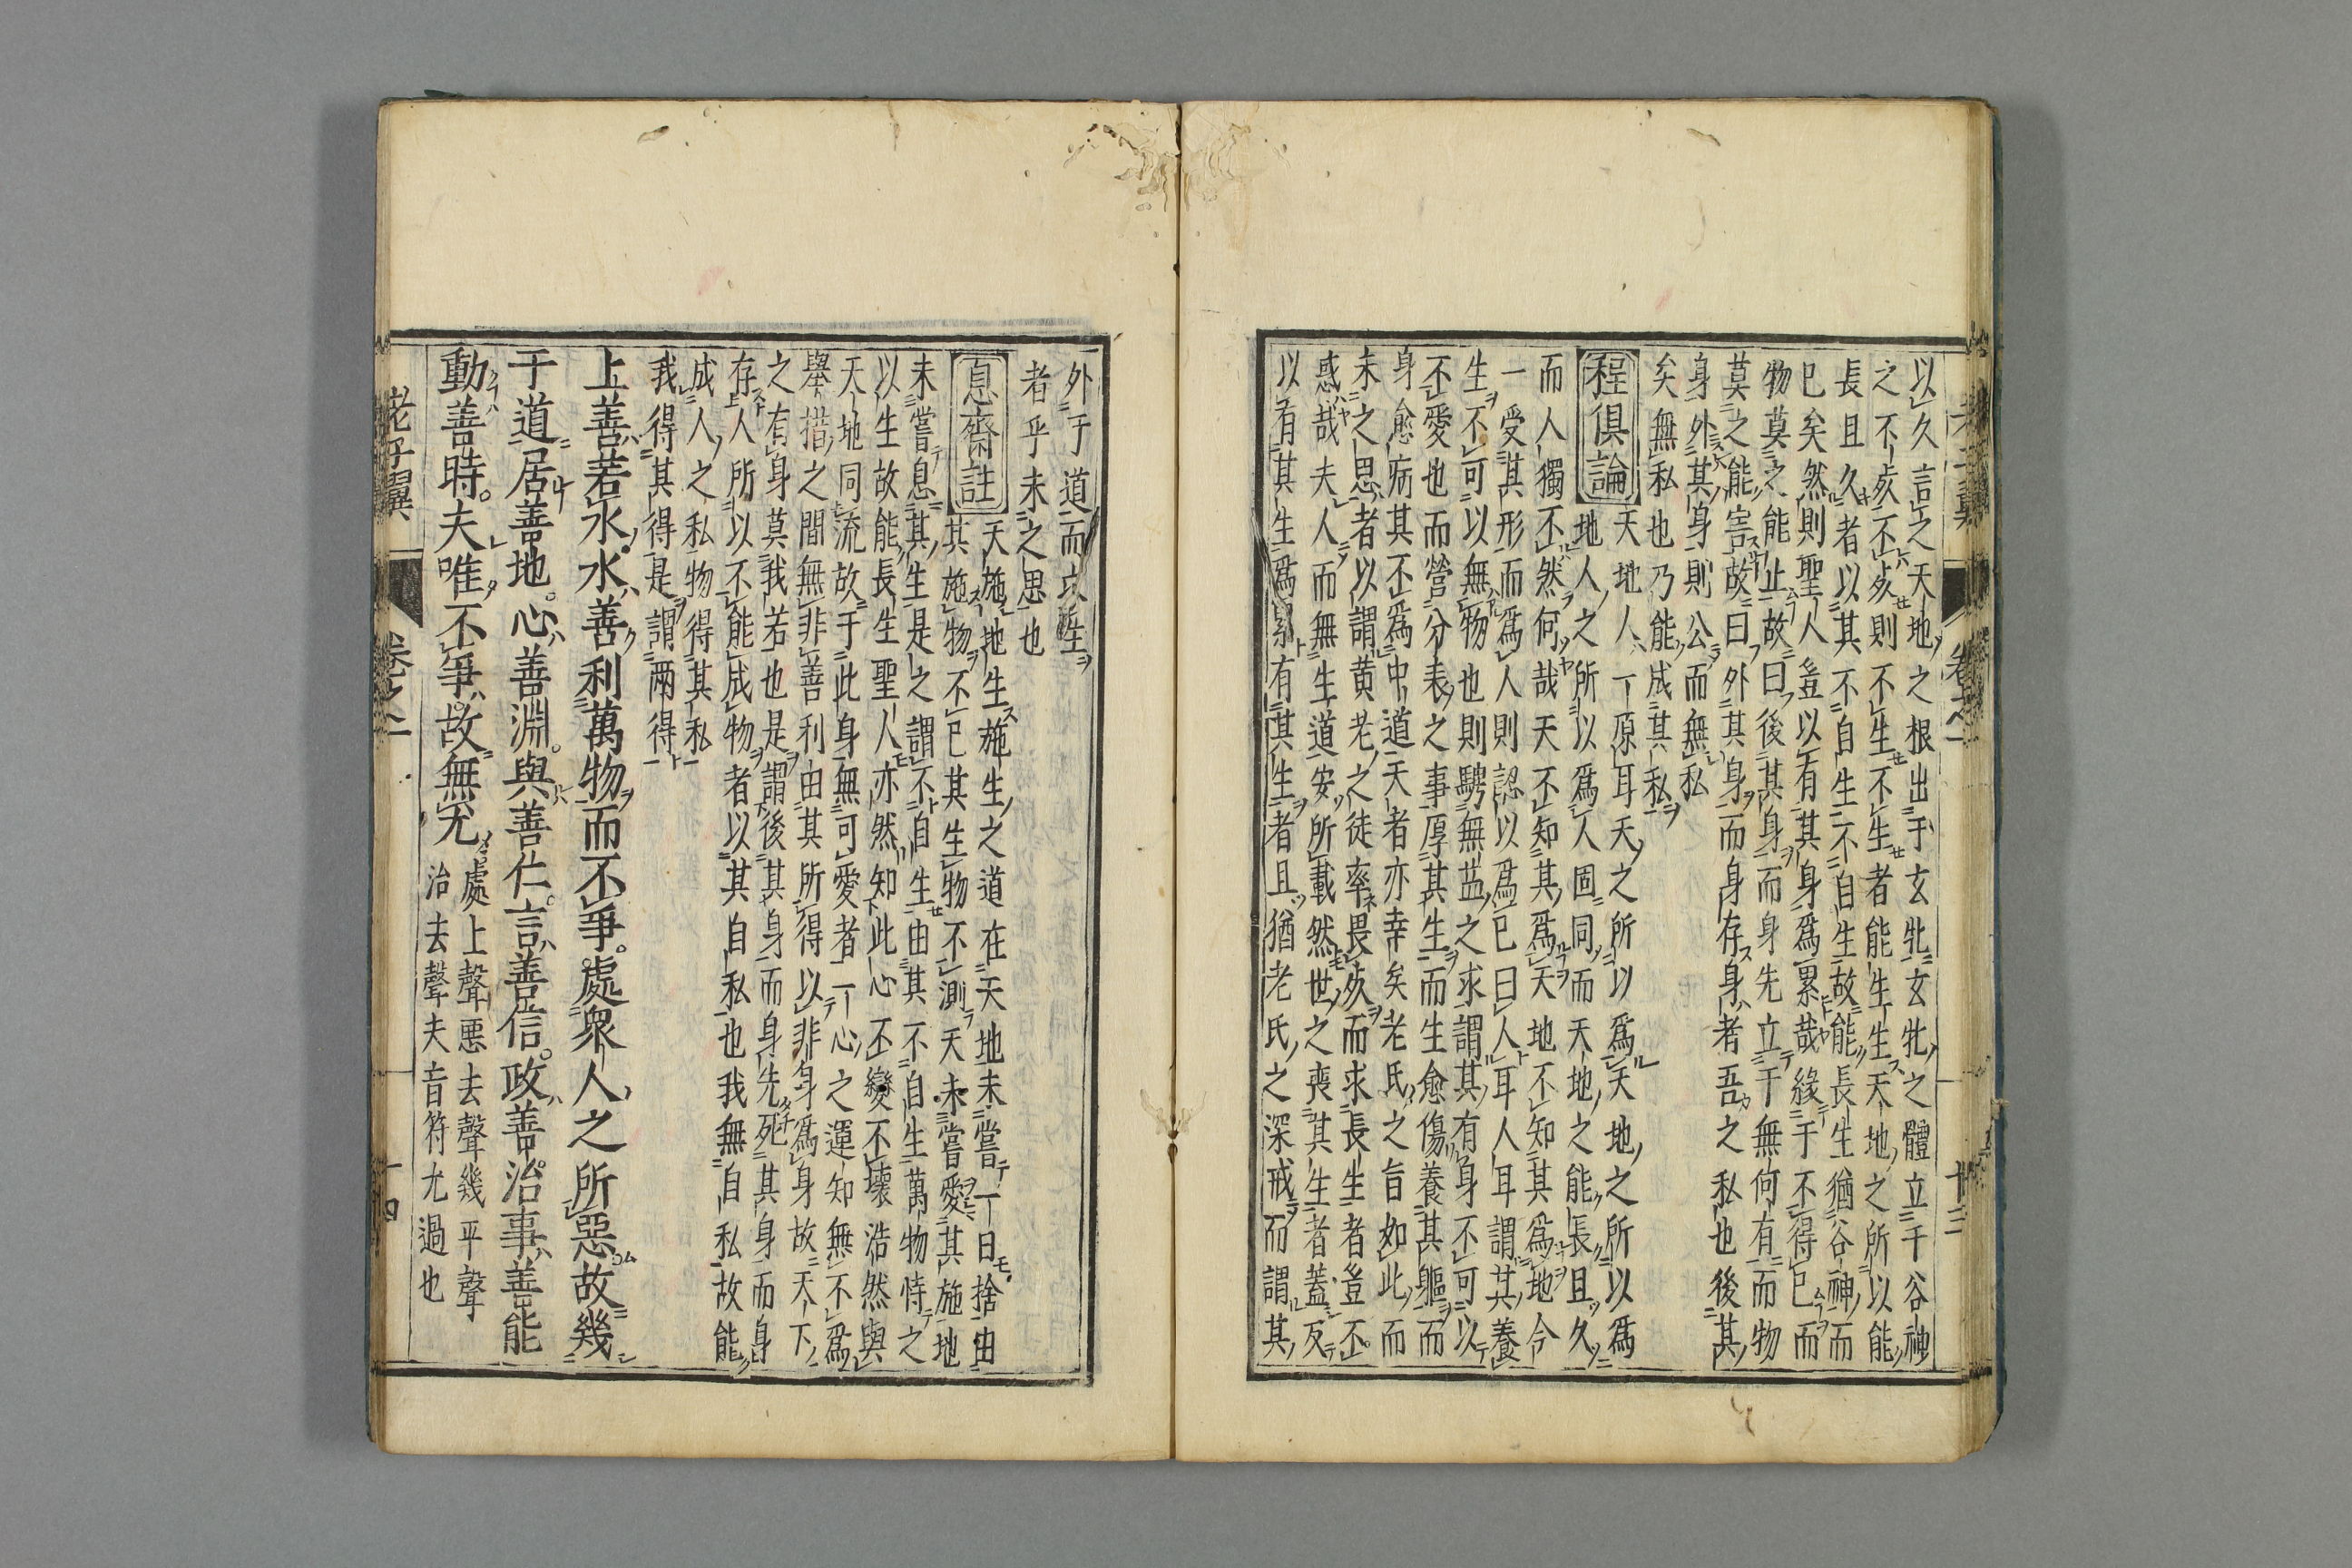 以久言之天地之根出于玄牝玄牝之體立于谷神
之不死不死則不生不生者能生生天地之所以能
長且久者以其不自生不自生故能長生猶谷神而
已矣然則聖人豈以有其身爲累哉緣于不得已而
物莫之能止故曰後其身而身先立于無何有而物
莫之能害故曰外其身而身存身者吾之私也後其
身外其身則公而無私
矣無私也乃能成其私
程俱論
天地人一原耳天之所以爲天地之所以爲
地人之所以爲人固同而天地之能長且久
而人獨不然何哉天不知其爲天地不知其爲地今
一受其形而爲人則認以爲已曰人耳人耳謂其養
生不可以無物也則騁無益之求謂其有身不可以
不愛也而營分表之事厚其生而生愈傷養其軀而
身愈病其不爲中道夭者亦幸矣老氏之旨如此而
未之思者以謂黄老之徒率畏死而求長生者豈不
惑哉夫人而無生道安所載然世之喪其生者蓋反
以有其生爲累有其生者且猶老氏之深戒而謂其
老子翼 卷之一 十三
外于道而求生
者乎未之思也
息齋註
天施地生施生之道在天地未嘗一日捨由
其施物不已其生物不測天未嘗愛其施地
未嘗息其生是之謂不自生由其不自生萬物恃之
以生故能長生聖人亦然知此心不變不壞浩然與
天地同流故于此身無可愛者一心之運知無不爲
舉措之間無非善利由其所得以非身爲身故天下
之有身莫我若也是謂後其身而身先死其身而身
存人所以不能成物者以其自私也我無自私故能
成人之私物得其私
我得其得是謂兩得
上善若水水善利萬物而不爭處衆人之所惡故幾
于道居善地心善淵與善仁言善信政善治事善能
動善時夫唯不爭故無尤
處上聲惡去聲幾平聲
治去聲夫音符尤過也
老子翼 卷之一 十四